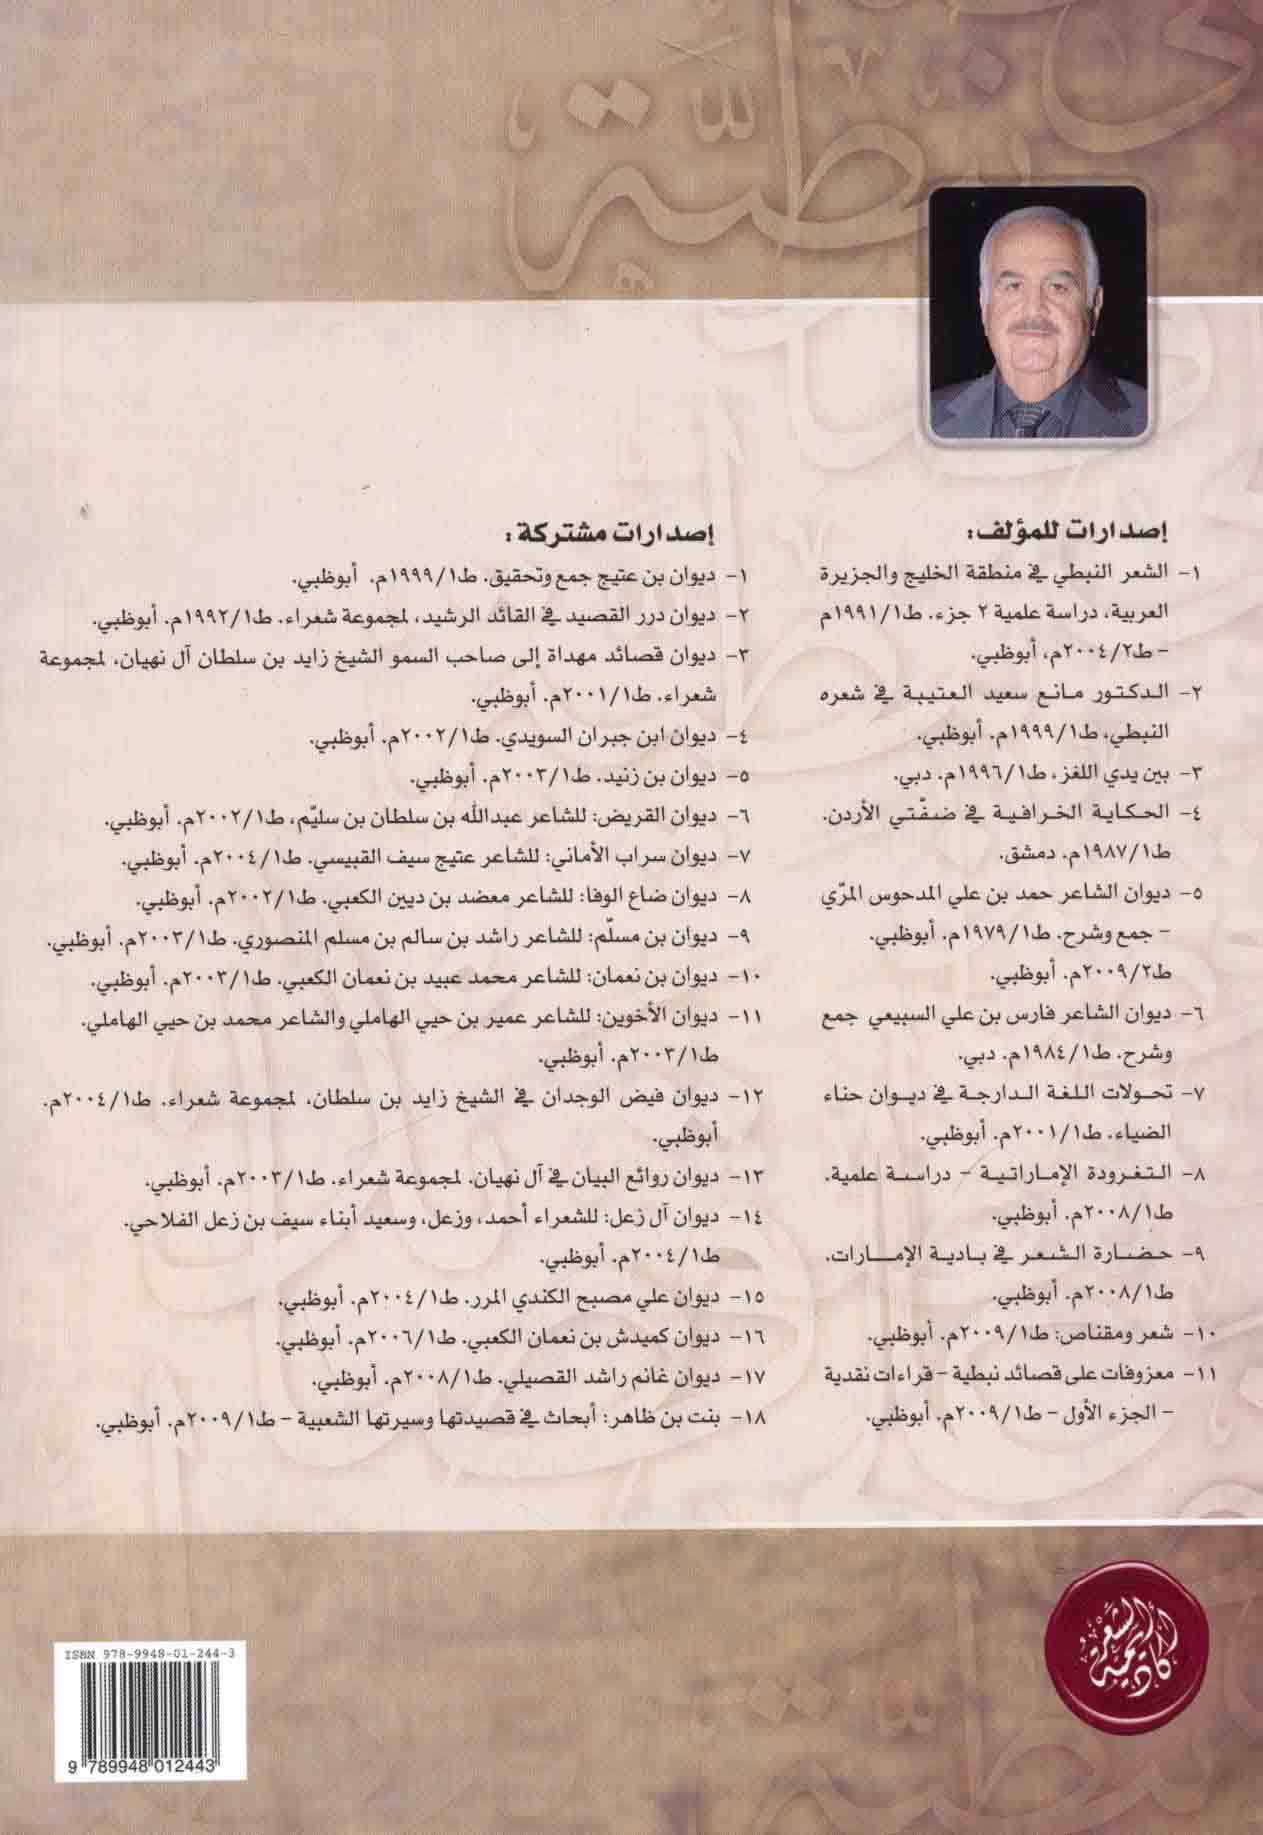 إصدارات للمؤلف:
١- الشعر النبطي في منطقة الخليج والجزيرة
العربية، دراسة علمية ٢ جزء. ط١/١٩٩١م
- ط٢/٢٠٠٤م، أبوظبي.
٢- الدكتور مانع سعيد العتيبة في شعره
النبطي، ط١/١٩٩٩م. أبوظبي.
٣- بين يدي اللغز، ط١/١٩٩٦م. دبي.
٤- الحكاية الخرافية في ضفّتي الأردن.
ط١/١٩٨٧م. دمشق.
٥- ديوان الشاعر حمد بن علي المدحوس المرّي
- جمع وشرح. ط١/١٩٧٩م. أبوظبي.
ط٢/٢٠٠٩م. أبوظبي.
٦- ديوان الشاعر فارس بن علي السبيعي جمع
وشرح. ط١/١٩٨٤م. دبي.
٧- تحولات اللغة الدارجة في ديوان حناء
الضياء. ط١/٢٠٠١م. أبوظبي.
٨- التغرودة الإماراتية - دراسة علمية.
ط١/٢٠٠٨م. أبوظبي.
٩- حضارة الشعر في بادية الإمارات.
ط١/٢٠٠٨م. أبوظبي.
١٠- شعر ومقناص: ط١/٢٠٠٩م. أبوظبي.
١١- معزوفات على قصائد نبطية - قراءات نقدية
- الجزء الأول - ط١/٢٠٠٩م. أبوظبي.
إصدارات مشتركة:
١- ديوان بن عتيج جمع وتحقيق. ط١/١٩٩٩م. أبوظبي.
٢- ديوان درر القصيد في القائد الرشيد، لمجموعة شعراء. ط١/١٩٩٢م. أبوظبي.
٣- ديوان قصائد مهداة إلى صاحب السمو الشيخ زايد بن سلطان آل نهيان، لمجموعة
شعراء. ط١/٢٠٠١م. أبوظبي.
٤- ديوان ابن جبران السويدي. ط١/٢٠٠٢م. أبوظبي.
٥- ديوان بن زنيد. ط١/٢٠٠٣م. أبوظبي.
٦- ديوان القريض: للشاعر عبدالله بن سلطان بن سليّم، ط١/٢٠٠٢م. أبوظبي.
٧- ديوان سراب الأماني: للشاعر عتيج سيف القبيسي. ط١/٢٠٠٤م. أبوظبي.
٨- ديوان ضاع الوفا: للشاعر معضد بن ديين الكعبي. ط١/٢٠٠٢م. أبوظبي.
٩- ديوان بن مسلّم: للشاعر راشد بن سالم بن مسلم المنصوري. ط١/٢٠٠٣م. أبوظبي.
١٠- ديوان بن نعمان: للشاعر محمد عبيد بن نعمان الكعبي. ط١/٢٠٠٣م. أبوظبي.
١١- ديوان الأخوين: للشاعر عمير بن حيي الهاملي والشاعر محمد بن حيي الهاملي.
ط١/٢٠٠٣م. أبوظبي.
١٢- ديوان فيض الوجدان في الشيخ زايد بن سلطان، لمجموعة شعراء. ط١/٢٠٠٤م.
أبوظبي.
١٣- ديوان روائع البيان في آل نهيان. لمجموعة شعراء. ط١/٢٠٠٣م. أبوظبي.
١٤- ديوان آل زعل: للشعراء أحمد، وزعل، وسعيد أبناء سيف بن زعل الفلاحي.
ط١/٢٠٠٤م. أبوظبي.
١٥- ديوان علي مصبح الكندي المرر. ط١/٢٠٠٤م. أبوظبي.
١٦- ديوان كميدش بن نعمان الكعبي. ط١/٢٠٠٦م. أبوظبي.
١٧- ديوان غانم راشد القصيلي. ط١/٢٠٠٨م. أبوظبي.
١٨- بنت بن ظاهر: أبحاث في قصيدتها وسيرتها الشعبية - ط١/٢٠٠٩م. أبوظبي.
أكاديمية الشعر
ISBN 978-9948-01-244-3
9 789948 012443